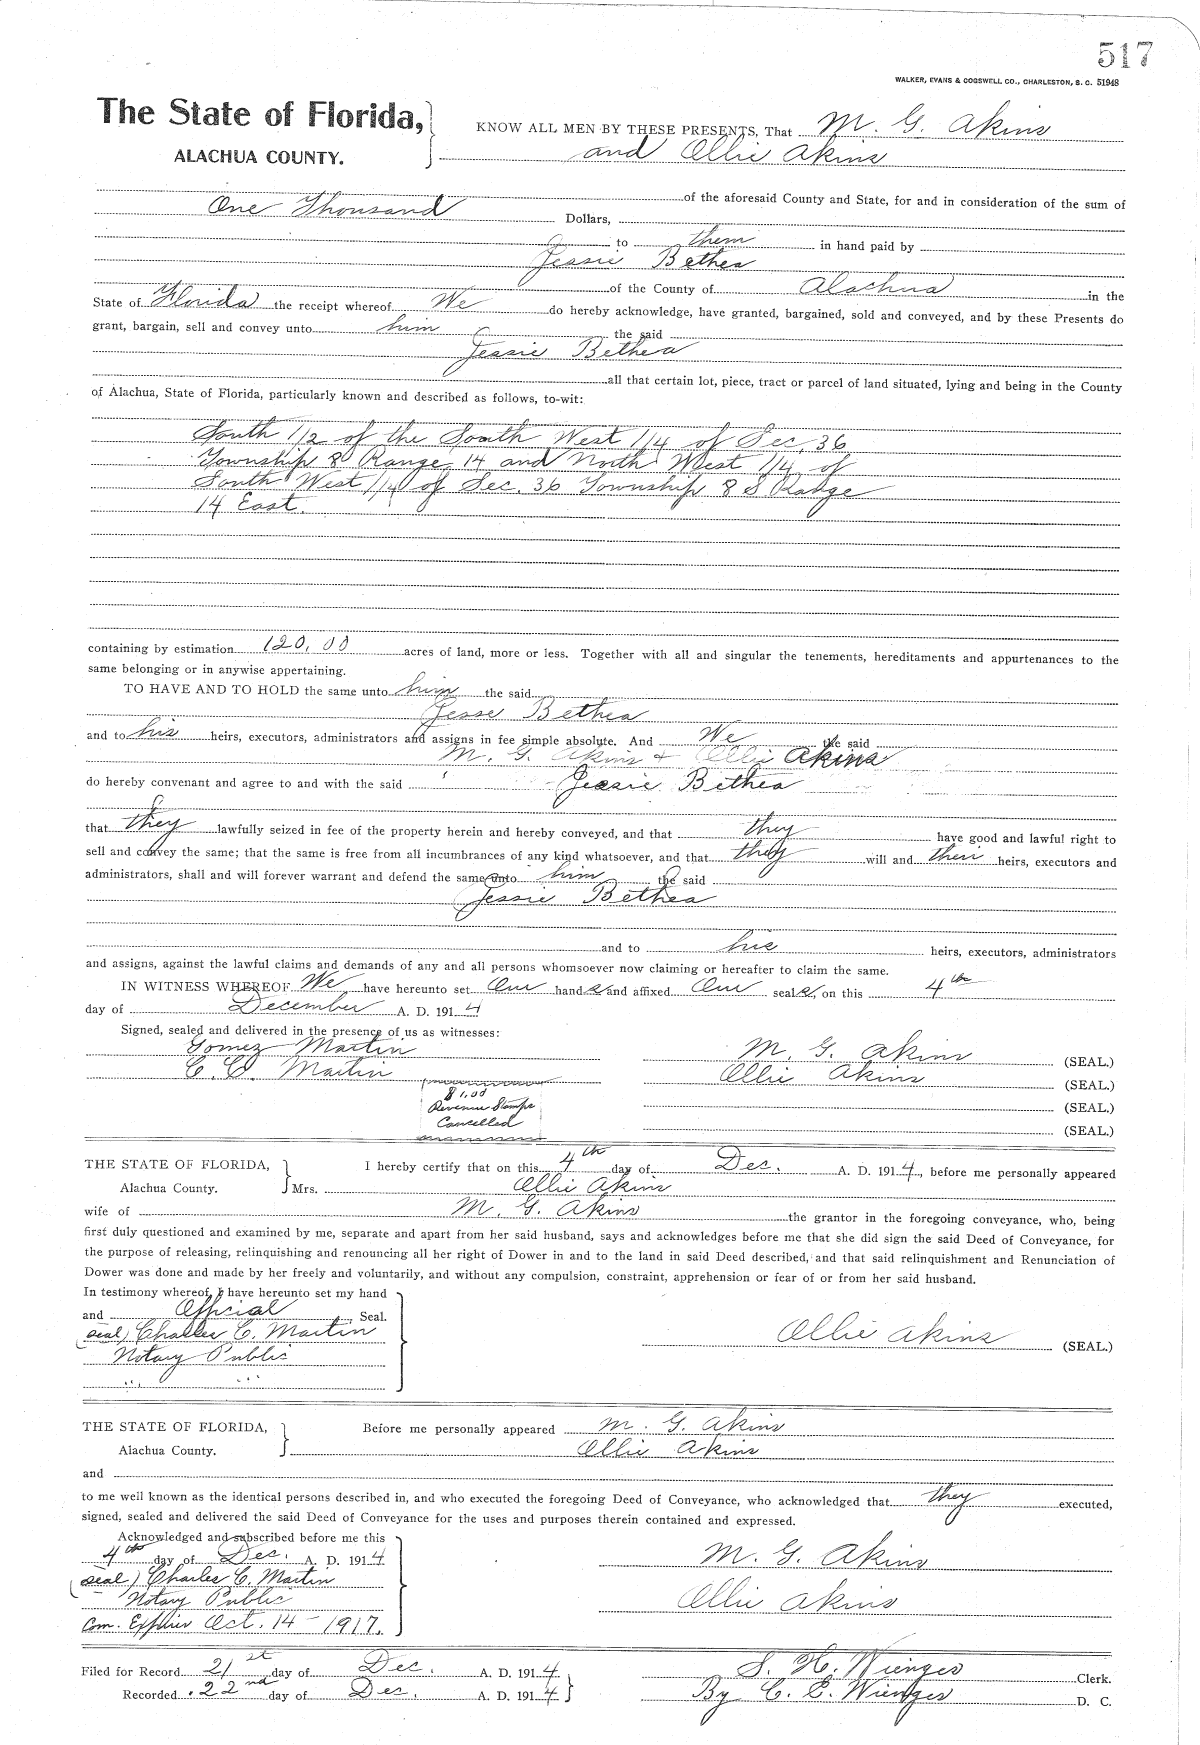 517
WALKER, EVANS & COGSWELL CO., CHARLESTON, S. C. 51948
The State of Florida,
ALACHUA COUNTY.
KNOW ALL MEN BY THESE PRESENTS, That M. G. Akins
and Ollie Akins
of the aforesaid County and State, for and in consideration of the sum of
One Thousand Dollars,
to them in hand paid by
Jessie Bethea
of the County of Alachua in the
State of Florida the receipt whereof We do hereby acknowledge, have granted, bargained, sold and conveyed, and by these Presents do
grant, bargain, sell and convey unto him the said
Jessie Bethea
all that certain lot, piece, tract or parcel of land situated, lying and being in the County
of Alachua, State of Florida, particularly known and described as follows, to-wit:
South 1/2 of the South West 1/4 of Sec, 36
Township 8 Range 14 and North West 1/4 of
South West 1/4 of Sec. 36 Township 8 S Range
14 East.
containing by estimation 120.00 acres of land, more or less. Together with all and singular the tenements, hereditaments and appurtenances to the
same belonging or in anywise appertaining.
TO HAVE AND TO HOLD the same unto him the said
Jesse Bethea
and to his heirs, executors, administrators and assigns in fee simple absolute. And We the said
M. G. Akins + Ollie Akins
do hereby convenant and agree to and with the said Jessie Bethea
that they lawfully seized in fee of the property herein and hereby conveyed, and that they have good and lawful right to
sell and convey the same; that the same is free from all incumbrances of any kind whatsoever, and that they will and their heirs, executors and
administrators, shall and will forever warrant and defend the same unto him the said
Jessie Bethea
and to his heirs, executors, administrators
and assigns, against the lawful claims and demands of any and all persons whomsoever now claiming or hereafter to claim the same.
IN WITNESS WHEREOF We have hereunto set Our hands and affixed Our seals, on this 4th
day of December A. D. 1914
Signed, sealed and delivered in the presence of us as witnesses:
Gomez Martin
C. C. Martin
M. G. Akins (SEAL.)
Ollie Akins (SEAL.)
(SEAL.)
(SEAL.)
$1.00
Revenue Stamps
Cancelled
THE STATE OF FLORIDA,
Alachua County.
I hereby certify that on this 4th day of Dec. A. D. 1914, before me personally appeared
Mrs. Ollie Akins
wife of M. G. Akins the grantor in the foregoing conveyance, who, being
first duly questioned and examined by me, separate and apart from her said husband, says and acknowledges before me that she did sign the said Deed of Conveyance, for
the purpose of releasing, relinquishing and renouncing all her right of Dower in and to the land in said Deed described, and that said relinquishment and Renunciation of
Dower was done and made by her freely and voluntarily, and without any compulsion, constraint, apprehension or fear of or from her said husband.
In testimony whereof, I have hereunto set my hand
and Official Seal.
(seal) Charles C. Martin
Notary Public
Ollie Akins (SEAL.)
THE STATE OF FLORIDA,
Alachua County.
Before me personally appeared M. G. Akins
Ollie Akins
and
to me well known as the identical persons described in, and who executed the foregoing Deed of Conveyance, who acknowledged that they executed,
signed, sealed and delivered the said Deed of Conveyance for the uses and purposes therein contained and expressed.
Acknowledged and subscribed before me this
4th day of Dec. A. D. 1914
(seal) Charles C. Martin
Notary Public
Com. Expires Oct. 14 - 1917.
M. G. Akins
Ollie Akins
Filed for Record 21st day of Dec. A. D. 1914
Recorded 22nd day of Dec. A. D. 1914
S. H. Wienges Clerk.
By C. E. Wienges D. C.